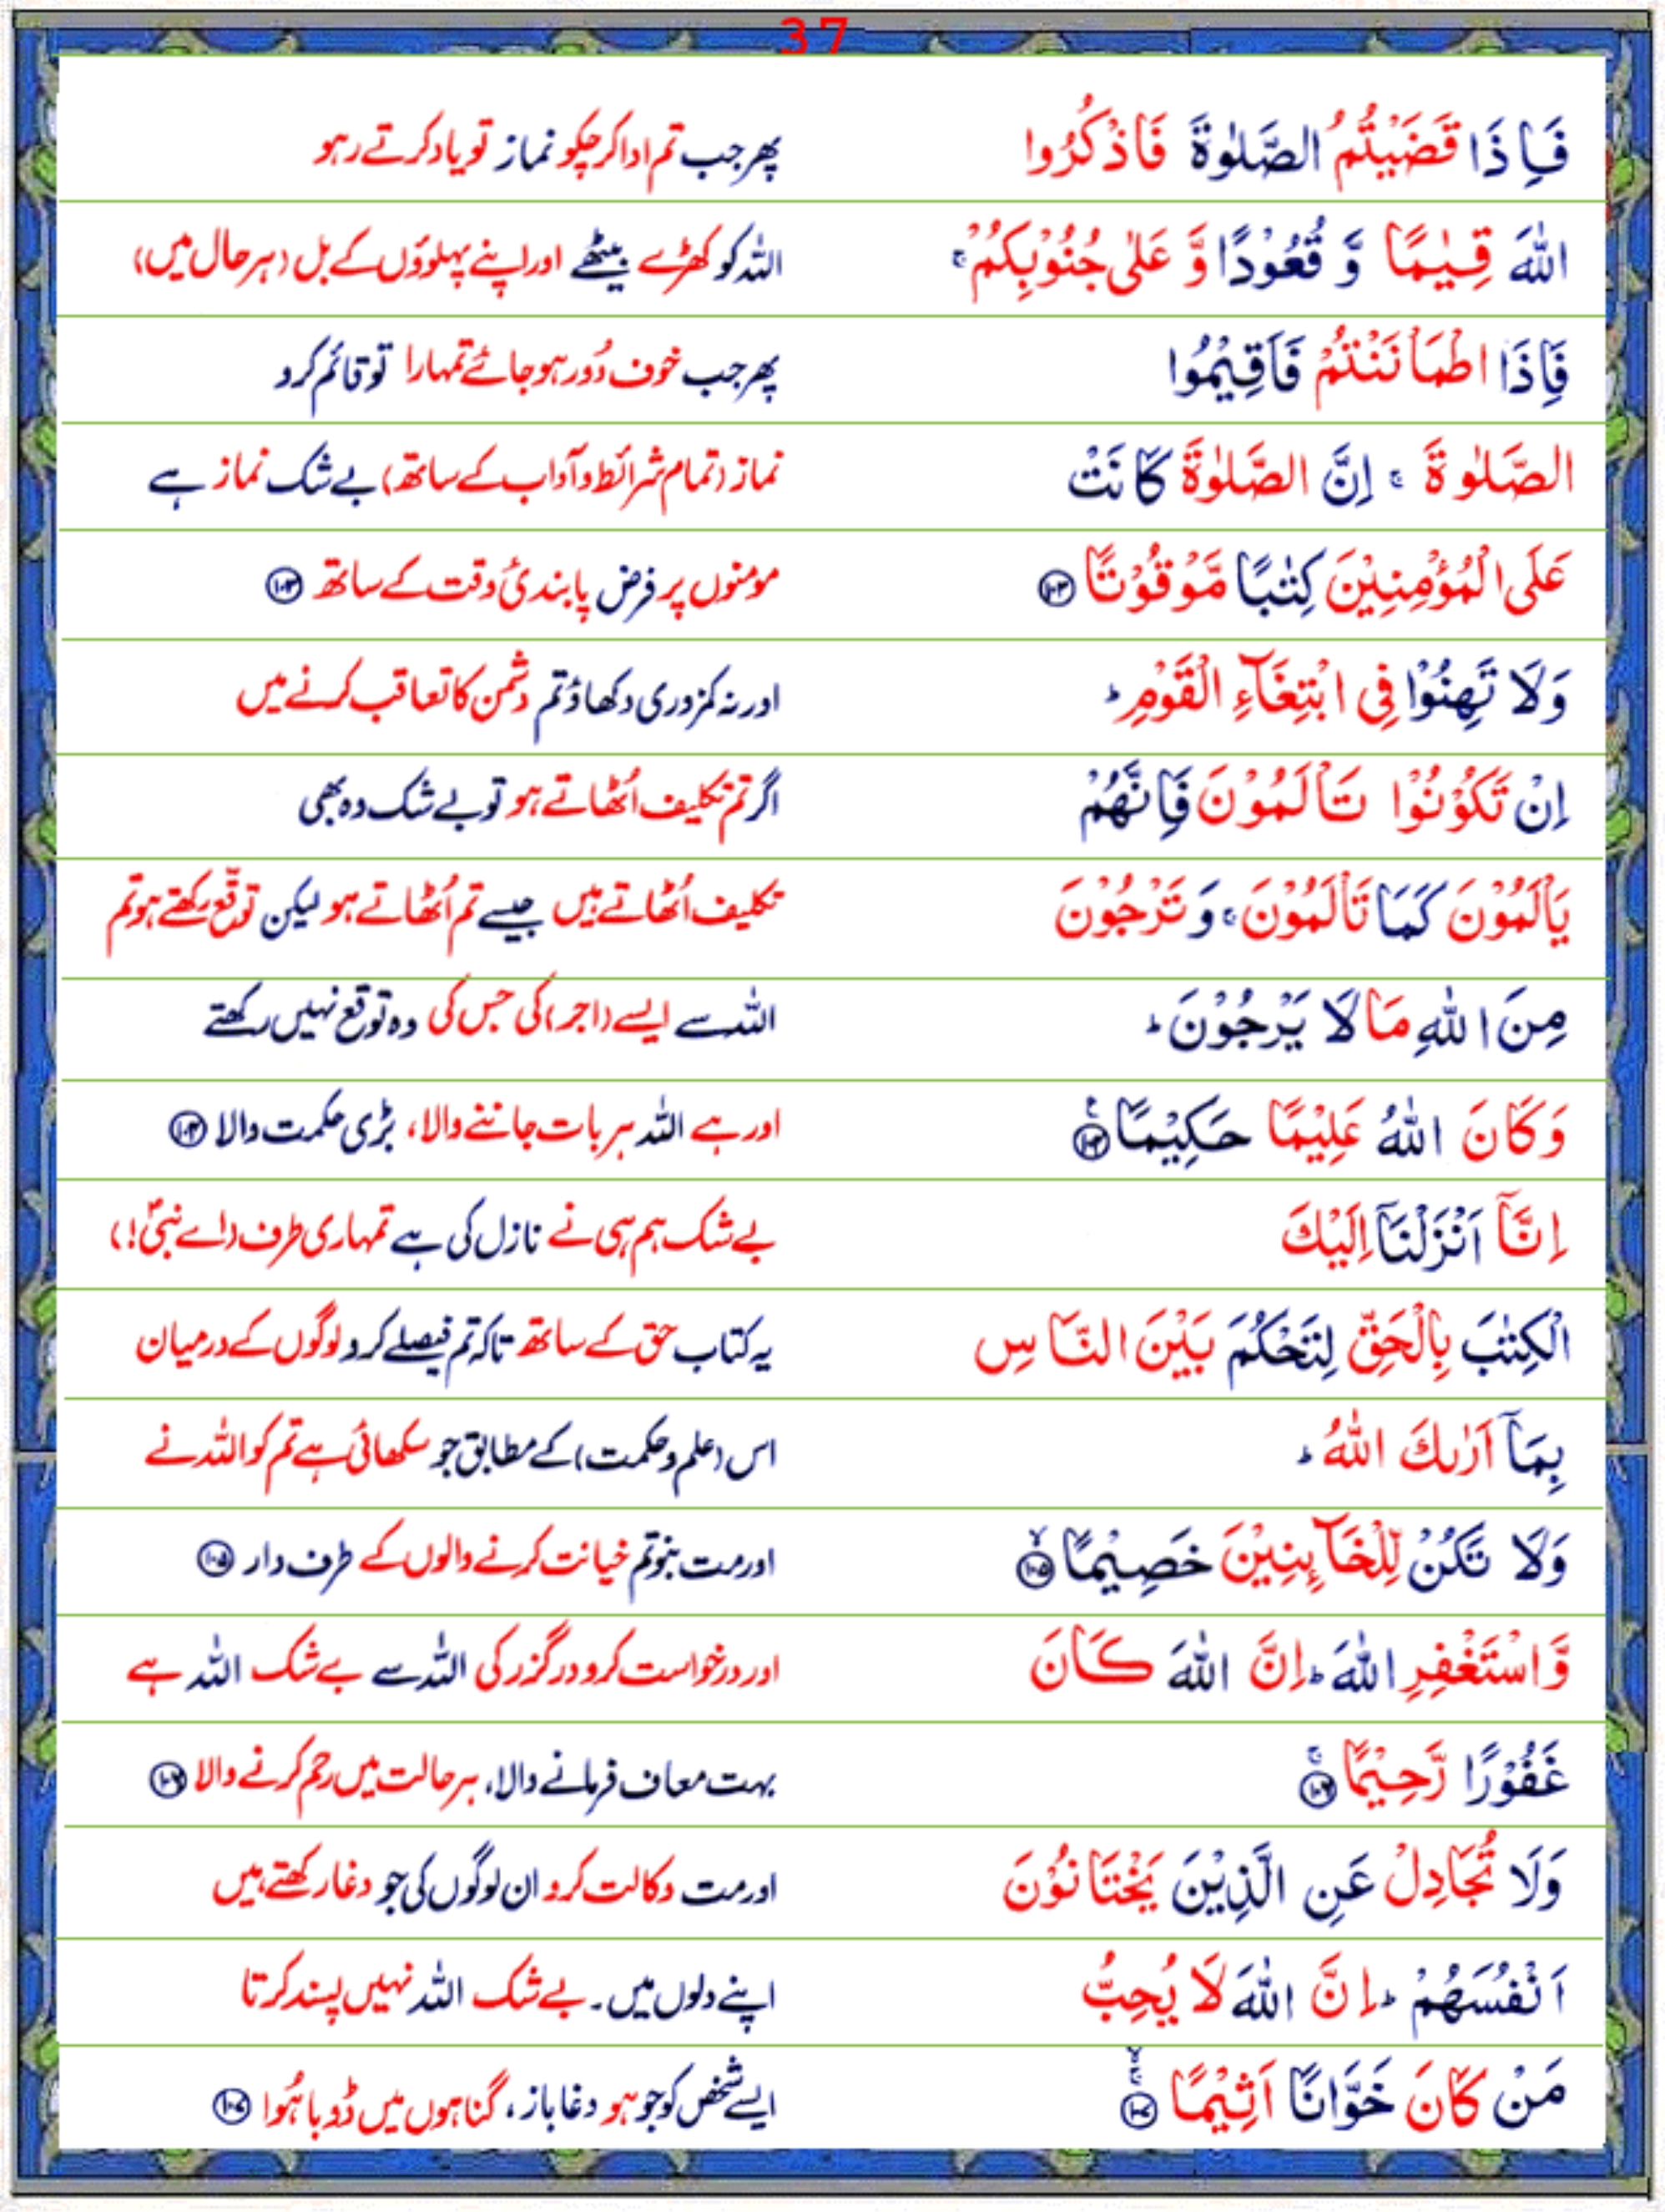 37
فَاِذَا قَضَيْتُمُ الصَّلٰوةَ فَاذْكُرُوا
پھر جب تم ادا کر چکو نماز تو یاد کرتے رہو
اللّٰهَ قِيٰمًا وَّ قُعُوْدًا وَّ عَلٰى جُنُوْبِكُمْ ۚ
اللہ کو کھڑے بیٹھے اور اپنے پہلوؤں کے بل (ہر حال میں)
فَاِذَا اطْمَاْنَنْتُمْ فَاَقِيْمُوا
پھر جب خوف دُور ہو جائے تمہارا تو قائم کرو
الصَّلٰوةَ ۚ اِنَّ الصَّلٰوةَ كَانَتْ
نماز (تمام شرائط و آداب کے ساتھ) بے شک نماز ہے
عَلَى الْمُؤْمِنِيْنَ كِتٰبًا مَّوْقُوْتًا ﴿۱۰۳﴾
مومنوں پر فرض پابندیٔ وقت کے ساتھ ﴿۱۰۳﴾
وَلَا تَهِنُوْا فِى ابْتِغَآءِ الْقَوْمِ ؕ
اور نہ کمزوری دکھاؤ تم دشمن کا تعاقب کرنے میں
اِنْ تَكُوْنُوْا تَاْلَمُوْنَ فَاِنَّهُمْ
اگر تم تکلیف اُٹھاتے ہو تو بے شک وہ بھی
يَاْلَمُوْنَ كَمَا تَاْلَمُوْنَ ۚ وَ تَرْجُوْنَ
تکلیف اُٹھاتے ہیں جیسے تم اُٹھاتے ہو لیکن توقّع رکھتے ہو تم
مِنَ اللّٰهِ مَا لَا يَرْجُوْنَ ؕ
اللہ سے ایسے (اجر) کی جس کی وہ توقع نہیں رکھتے
وَكَانَ اللّٰهُ عَلِيْمًا حَكِيْمًا ﴿۱۰۴﴾ۧ
اور ہے اللہ ہر بات جاننے والا، بڑی حکمت والا ﴿۱۰۴﴾
اِنَّاۤ اَنْزَلْنَاۤ اِلَيْكَ
بے شک ہم ہی نے نازل کی ہے تمہاری طرف (اے نبیؐ!)
الْكِتٰبَ بِالْحَقِّ لِتَحْكُمَ بَيْنَ النَّاسِ
یہ کتاب حق کے ساتھ تاکہ تم فیصلے کرو لوگوں کے درمیان
بِمَاۤ اَرٰىكَ اللّٰهُ ؕ
اس (علم و حکمت) کے مطابق جو سکھائی ہے تم کو اللہ نے
وَلَا تَكُنْ لِّلْخَآئِنِيْنَ خَصِيْمًا ﴿۱۰۵﴾ۙ
اور مت بنو تم خیانت کرنے والوں کے طرف دار ﴿۱۰۵﴾
وَّاسْتَغْفِرِ اللّٰهَ ؕ اِنَّ اللّٰهَ كَانَ
اور درخواست کرو درگزر کی اللہ سے بے شک اللہ ہے
غَفُوْرًا رَّحِيْمًا ﴿۱۰۶﴾ۚ
بہت معاف فرمانے والا، ہر حالت میں رحم کرنے والا ﴿۱۰۶﴾
وَلَا تُجَادِلْ عَنِ الَّذِيْنَ يَخْتَانُوْنَ
اور مت وکالت کرو ان لوگوں کی جو دغا رکھتے ہیں
اَنْفُسَهُمْ ؕ اِنَّ اللّٰهَ لَا يُحِبُّ
اپنے دلوں میں۔ بے شک اللہ نہیں پسند کرتا
مَنْ كَانَ خَوَّانًا اَثِيْمًا ﴿۱۰۷﴾ۚۙ
ایسے شخص کو جو ہو دغاباز، گناہوں میں ڈوبا ہُوا ﴿۱۰۷﴾